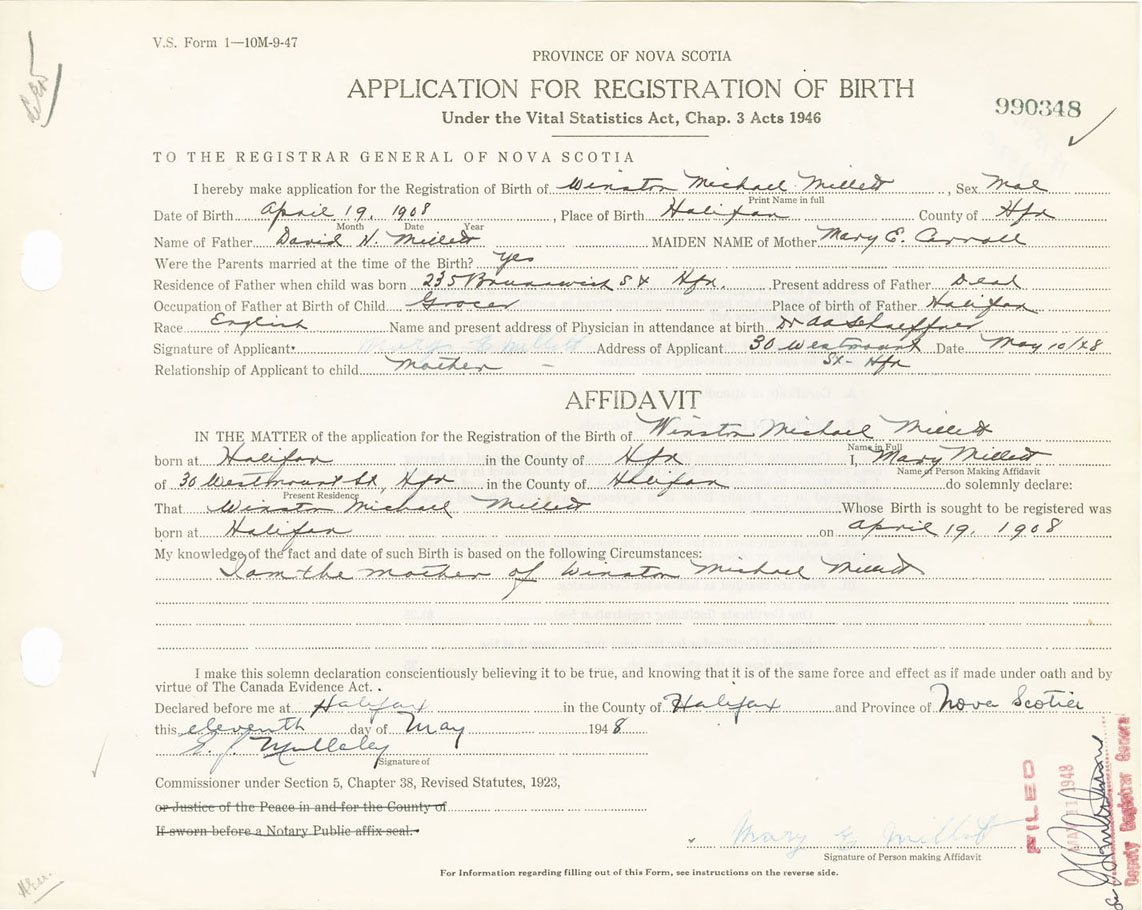 V.S. Form 1—10M-9-47
PROVINCE OF NOVA SCOTIA
APPLICATION FOR REGISTRATION OF BIRTH
990348
Under the Vital Statistics Act, Chap. 3 Acts 1946
TO THE REGISTRAR GENERAL OF NOVA SCOTIA
I hereby make application for the Registration of Birth of Winston Michael Millett, Sex Mal
Print Name in full
Date of Birth April 19, 1908, Place of Birth Halifax County of Hfx
Month Date Year
Name of Father David H. Millett MAIDEN NAME of Mother Mary E. Carroll
Were the Parents married at the time of the Birth? Yes
Residence of Father when child was born 235 Brunswick St Hfx. Present address of Father Dead
Occupation of Father at Birth of Child Grocer Place of birth of Father Halifax
Race English Name and present address of Physician in attendance at birth Dr
Signature of Applicant Mary E Millett Address of Applicant 30 Westmount Date May 10/48
St- Hfx
Relationship of Applicant to child Mother -
AFFIDAVIT
IN THE MATTER of the application for the Registration of the Birth of Winston Michael Millett
Name in Full
born at Halifax in the County of Hfx I, Mary Millett
Name of Person Making Affidavit
of 30 Westmount St, Hfx in the County of Halifax do solemnly declare:
Present Residence
That Winston Michael Millett Whose Birth is sought to be registered was
born at Halifax on April 19, 1908
My knowledge of the fact and date of such Birth is based on the following Circumstances:
I am the mother of Winston Michael Millett
I make this solemn declaration conscientiously believing it to be true, and knowing that it is of the same force and effect as if made under oath and by
virtue of The Canada Evidence Act.
Declared before me at Halifax in the County of Halifax and Province of Nova Scotia
this eleventh day of May 1948
E. J. Mullaley
Signature of
Commissioner under Section 5, Chapter 38, Revised Statutes, 1923,
or Justice of the Peace in and for the County of
If sworn before a Notary Public affix seal.
Mary E Millett
Signature of Person making Affidavit
For Information regarding filling out of this Form, see instructions on the reverse side.
FILED
MAY 11 1948
Deputy Registrar General